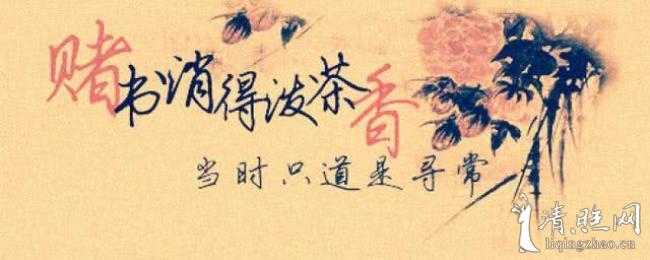 赌书消得泼茶香
当时只道是寻常
清照网
liqingzhao.cn